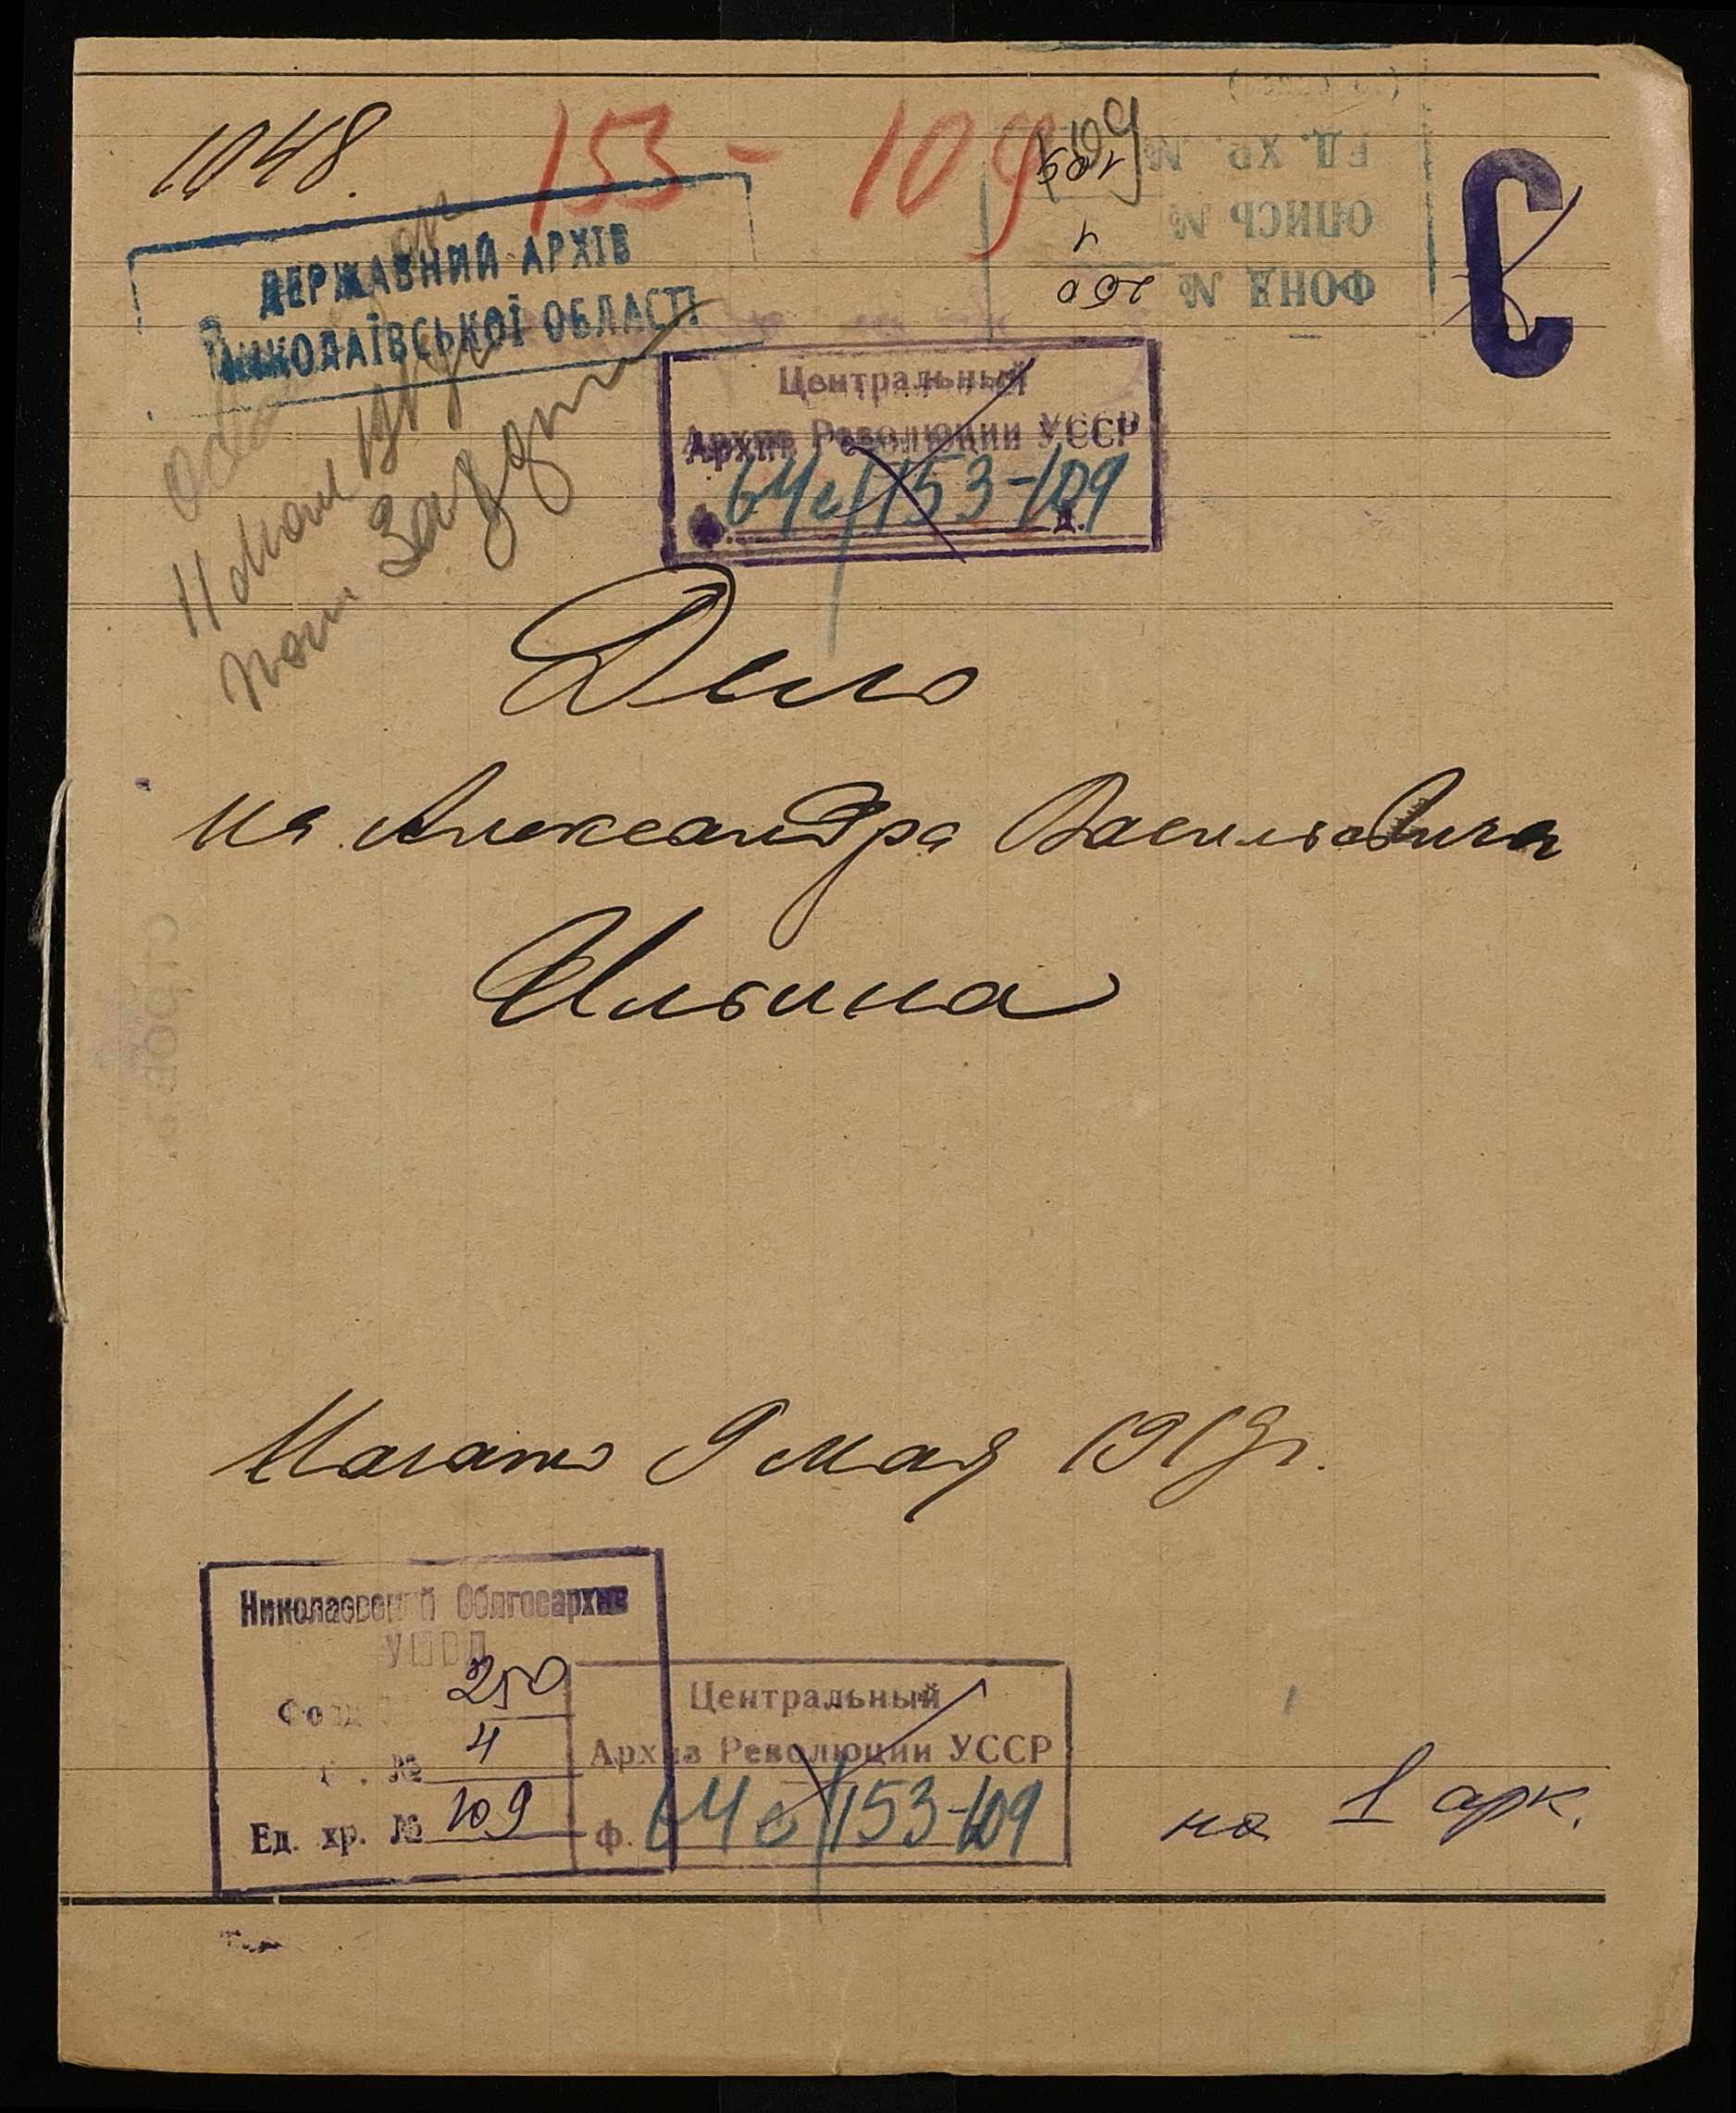 1048.
153 - 109
109
ЕД. ХР. № 109
ОПИСЬ № 1
ФОНД № 250
С
ДЕРЖАВНИЙ АРХІВ
МИКОЛАЇВСЬКОЇ ОБЛАСТІ
11 мая 1919
Центральный
Архив Революции УССР
ф. 64с/153-109 д.
Дело
на Александра Васильевича
Ильина
Начато 9 мая 1919 г.
Николаевский Облгосархив
УМВД
Фонд 250
№ 4
Ед. хр. № 109
Центральный
Архив Революции УССР
ф. 64с/153-109
на 1 арк.